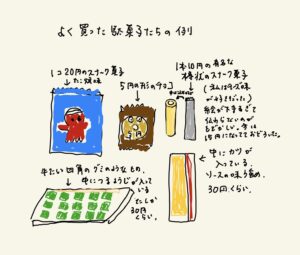 よく買った駄菓子たちの例
1コ20円のスナーク菓子
たこ焼味
5円の形のチョコ
1本10円の有名な
棒状のスナーク菓子
絵が下手すぎて
伝わらないのが
もどかしい。今は
15円になってておどろいた。
中にカツが
入っている。
ソースの味う濃め。
30円くらい。
平たい四角のグミのようなもの。
中につまようじが入って
いる
たしか
30円
くらい。